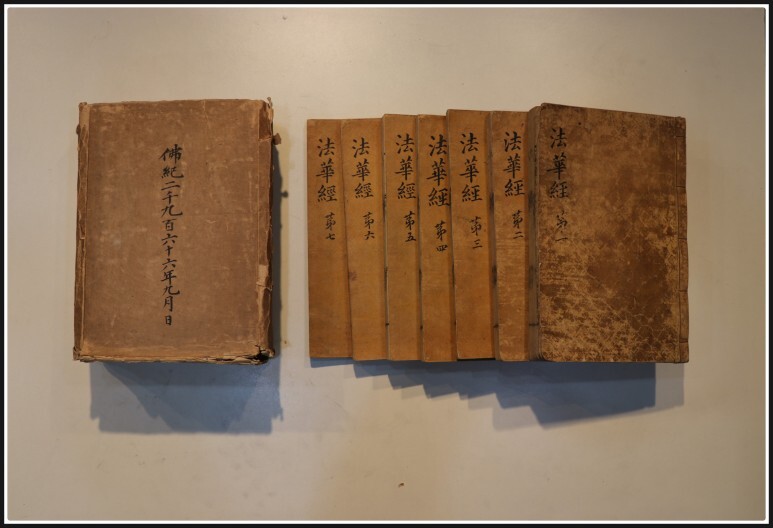 佛紀二千九百六十六年九月日
法華經 第一
法華經 第二
法華經 第三
法華經 第四
法華經 第五
法華經 第六
法華經 第七